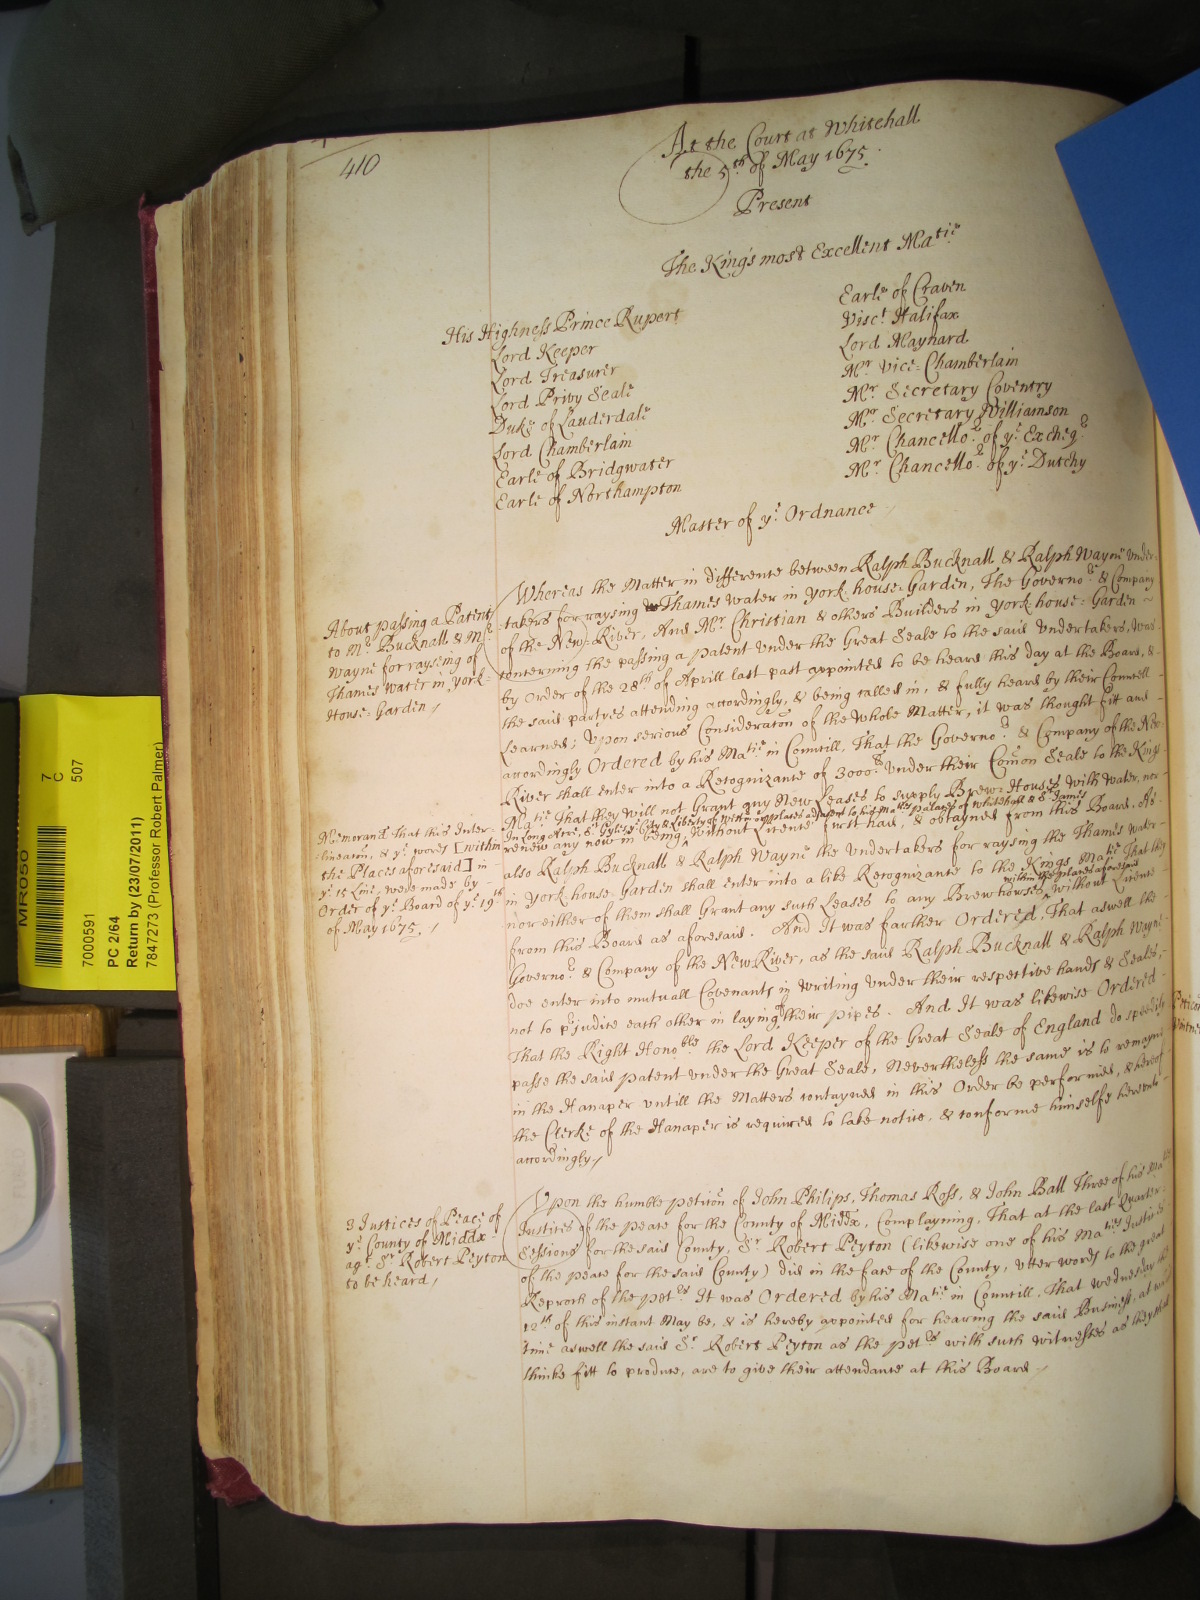 410
At the Court at Whitehall
the 5th of May 1675.
Present
The Kings most Excellent Matie
His Highness Prince Rupert
Lord Keeper
Lord Treasurer
Lord Privy Seale
Duke of Lauderdale
Lord Chamberlain
Earle of Bridgwater
Earle of Northampton
Earle of Craven
Visct Halifax
Lord Maynard
Mr Vice-Chamberlain
Mr Secretary Coventry
Mr Secretary Williamson
Mr Chancellor of ye Excheqr
Mr Chancellor of ye Dutchy
Master of ye Ordnance
About passing a Patent
to Mr Bucknall & Mr
Wayne for raysing of
Thames water in York-
House-Garden /
Whereas the Matter in difference between Ralph Bucknall & Ralph Wayne Under-
takers for raysing Thames water in York-house-Garden, The Governor & Company
of the New-River, And Mr Christian & others Builders in York-house-Garden ~
concerning the passing a Patent under the Great Seale to the said Undertakers, was
by Order of the 28th of Aprill last past appointed to be heard this day at the Board, &
the said partyes attending accordingly, & being called in, & fully heard by their Councell
Learned; Upon serious Consideration of the whole Matter, it was thought fit and
accordingly Ordered by his Matie in Councill, That the Governor & Company of the New
River shall enter into a Recognizance of 3000£ under their Comon Seale to the Kings
Matie That they will not Grant any New Leases to supply Brew-Houses with water, nor
In Long Acre, St Gyles, City & Liberty of Westr or places adjacent to his Maties palaces of Whitehall & St James
renew any now in being, without Licence first had, & obtayned from this Board. As
also Ralph Bucknall & Ralph Wayne the Undertakers for raysing the Thames water
in York-house-Garden shall enter into a like Recognizance to the Kings Matie That they
within the places aforesaid
nor either of them shall Grant any such Leases to any Brewhouses, without Licence
from this Board as aforesaid. And It was farther Ordered, That aswell the
Governor & Company of the New River, as the said Ralph Bucknall & Ralph Wayne
doe enter into mutuall Covenants in writing under their respective hands & Seales,
not to pjudice each other in laying their pipes. And It was likewise Ordered
That the Right Honoble the Lord Keeper of the Great Seale of England do speedily
passe the said patent under the Great Seale, Nevertheless the same is to remayne
in the Hanaper untill the Matters contayned in this Order be performed, & hereof
the Clerke of the Hanaper is required to take notice, & conforme himselfe hereunto
accordingly /
Memorand That this Inter-
lineation, & ye words [within
the Places aforesaid] in
ye 15 Line, were made by
Order of ye Board of ye 19th
of May 1675. /
3 Justices of Peace of
ye County of Middx
agt Sr Robert Peyton
to be heard /
Upon the humble petition of John Philips, Thomas Ross, & John Ball Three of his Maties
Justices of the peace for the County of Middx, Complayning, That at the last Quarter
Sessions for the said County, Sr Robert Peyton (likewise one of his Maties Justices
of the peace for the said County) did in the face of the County, utter words to the great
Reproch of the petrs It was Ordered by his Matie in Councill, That Wednesday the
12th of this instant May be, & is hereby appointed for hearing the said Business, at which
time aswell the said Sr Robert Peyton as the petrs with such witnesses as they shall
thinke fitt to produce, are to give their attendance at this Board /
MR050
7
C
507
7000591
PC 2/64
Return by (23/07/2011)
7847273 (Professor Robert Palmer)